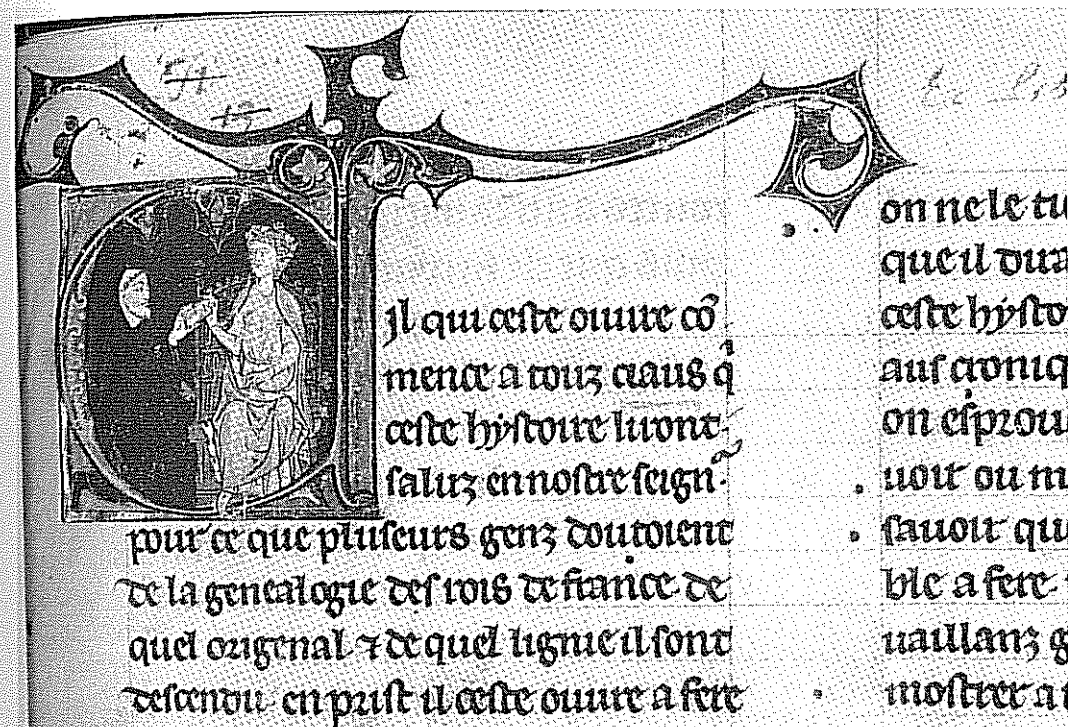 Cil qui ceste ouure cō
mence a touz ciaus q̇
ceste hystoire liront
saluz en nostre seign᷑.
pour ce que pluseurs genz doutoient
de la genealogie des rois de france de
quel orıgenal ⁊ de quel lignie il sont
descendu. en prist il ceste ouure a fere
on ne le tu
que il
ceste hysto
aus croniq
on esprou
uoir ou m
sauoir que
ble a fere
uaillanz g
mostrer a